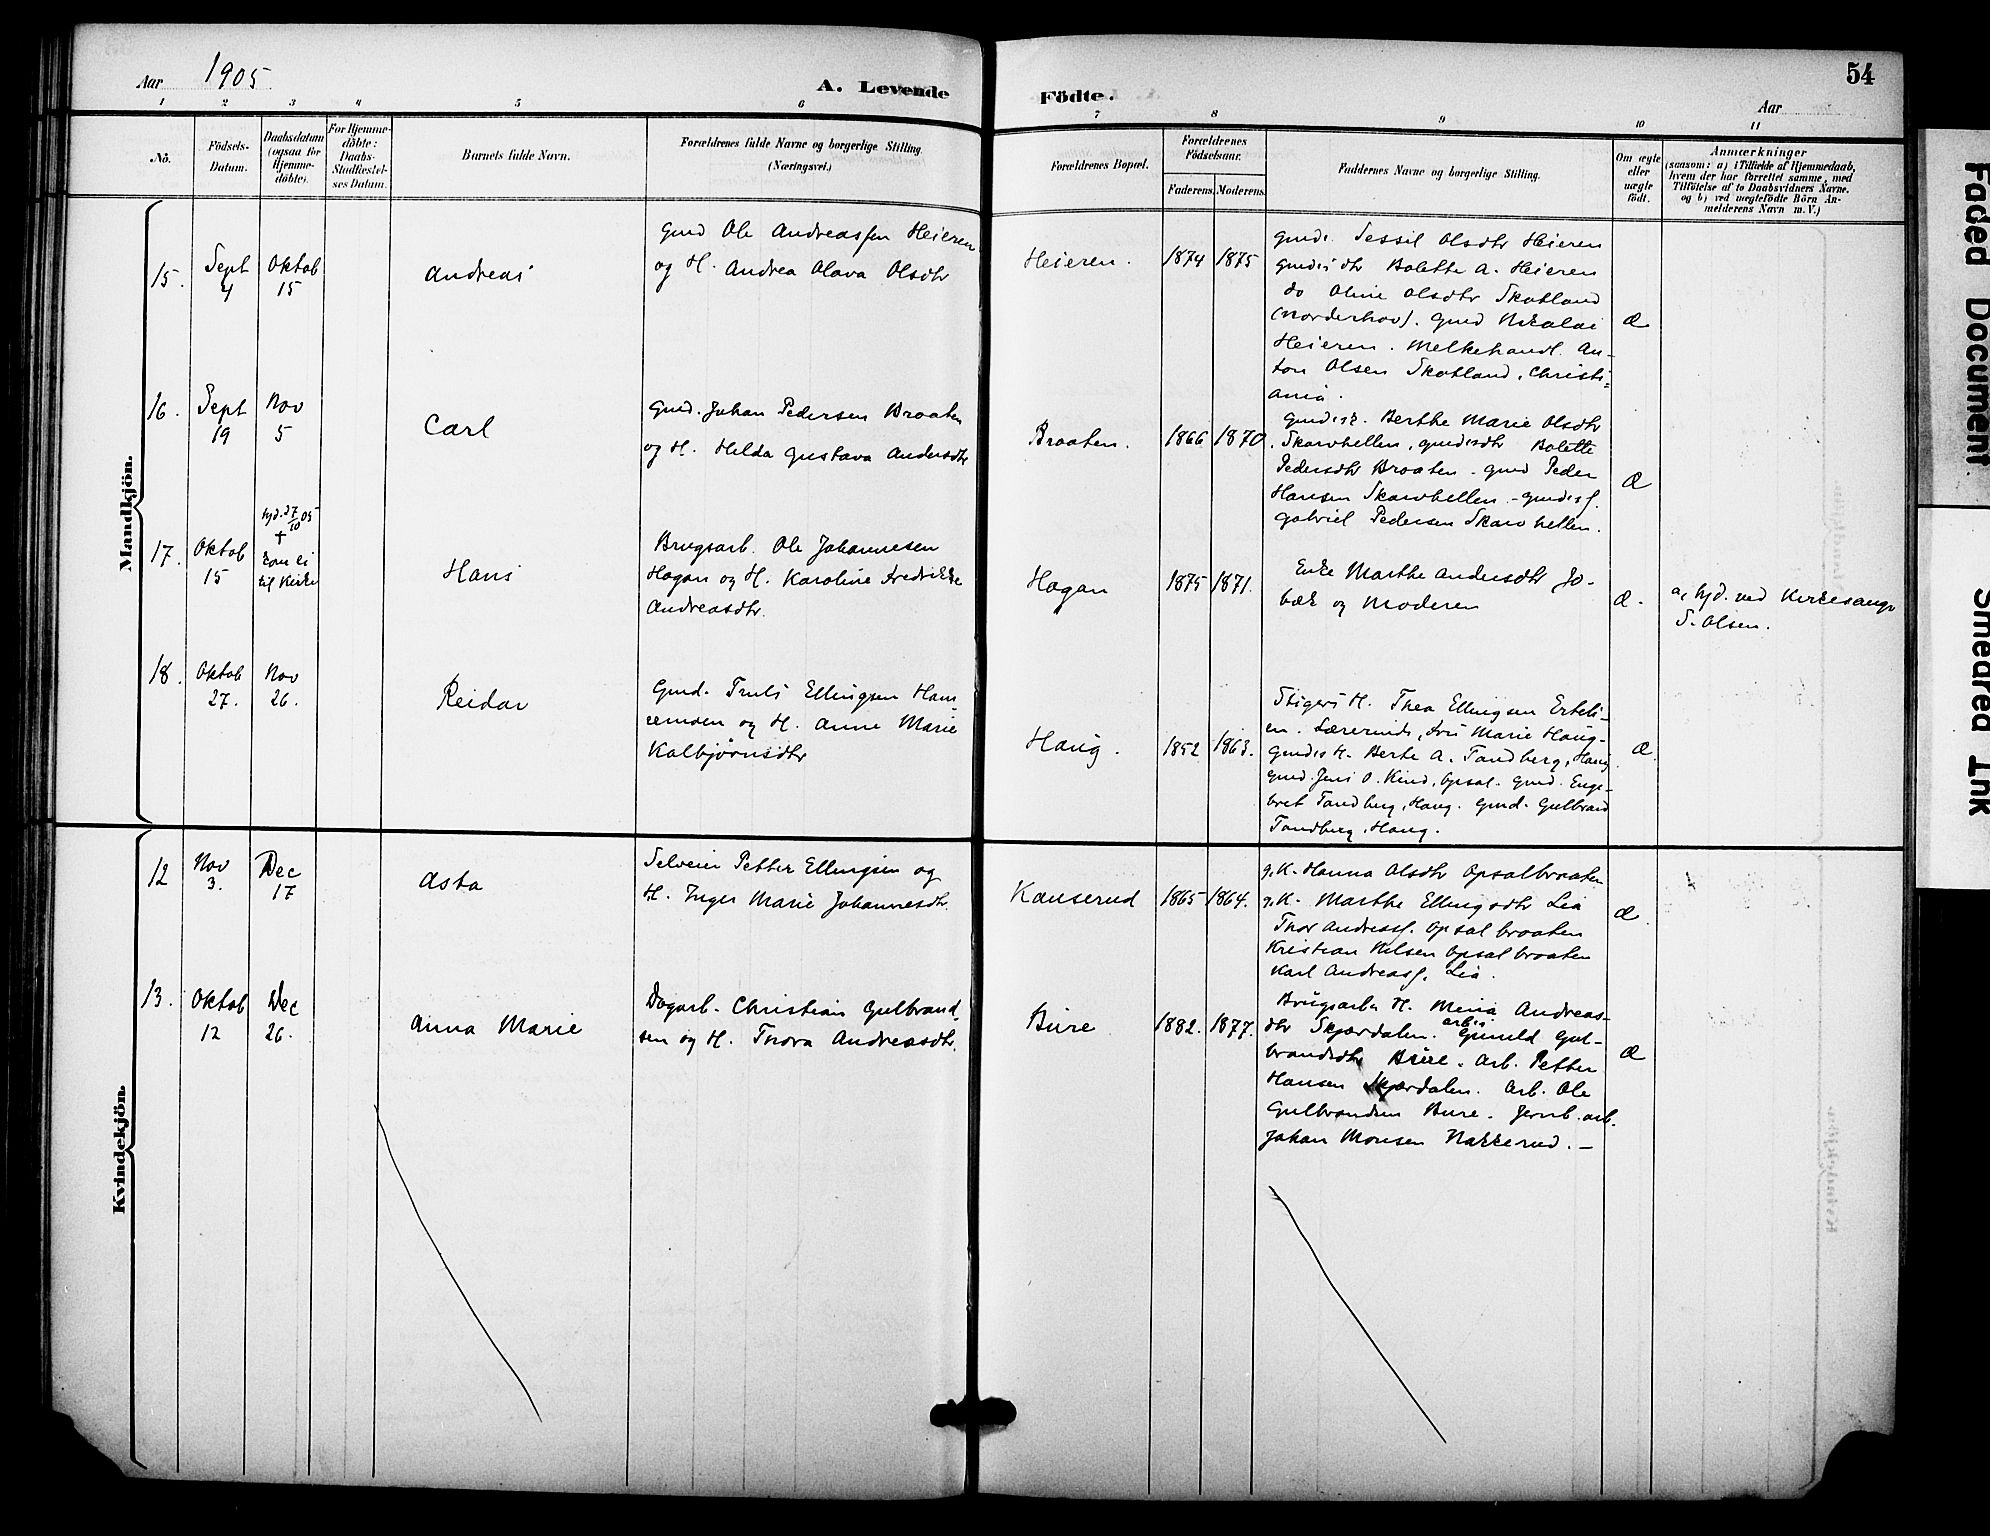 Aar 1905
A. Levende
Födte.
54
Aar
1 2 3 4 5 6 7 8 9 10 11
Nô.
Födsels-
Datum.
Daabsdatum
(ogsaa for
Hjemme-
döbte).
For Hjemme-
döbte:
Daabs-
Stadfæstel-
ses Datum.
Barnets fulde Navn.
Forældrenes fulde Navne og borgerlige Stilling.
(Næringsvei.)
Forældrenes Bopæl.
Forældrenes
Födselsaar.
Faderens. Moderens.
Faddernes Navne og borgerlige Stilling.
Om ægte
eller
uægte
födt.
Anmærkninger
(saasom: a) i Tilfælde af Hjemmedaab,
hvem der har forrettet samme, med
Tilföielse af to Daabsvidners Navne.
og b) ved uægtefödte Börn An-
melderens Navn m. V.)
Mandkjön.
15.
Sept
4
Oktob
15
Andreas
Gmd Ole Andreassen Heieren
og H. Andrea Olava Olsdtr
Heieren.
1874 1875
Gmds. Sessil Olsdtr Heieren
Gmds dtr Bolette A. Heieren
do Oline Olsdtr Skotland
(Norderhov). Gmd Nikolai
Heieren. Melkehandl. An-
ton Olsen Skotland, Christi-
ania.
Æ
16.
Sept
19
Nov
5
Carl
Gmd. Johan Pedersen Braaten
og H. Helda Gustava Andersdtr
Braaten.
1866 1870
Berthe Marie Olsdtr
Skarvhellen, gmdsdtr Bolette
Pedersdtr Braaten. Gmd Peder
Hansen Skarvhellen. - Gmds s.
Gabriel Pedersen Skarvhellen.
Æ
17.
Oktob
15
hjd. 27/10 05
+
kom ei
til Kirke
Hans
Brugsarb. Ole Johannesen
Hagan og H. Karoline Fredrikke
Andreasdtr.
Hagan
1875 1871.
Enke Marthe Andersdtr Jo-
bæk og Moderen
Æ.
a, hjd. ved Kirkesanger
S. Olsen.
18.
Oktob
27.
Nov
26.
Reidar
Gmd. Truls Ellingsen Hans-
emoen og H. Anne Marie
Kolbjørnsdtr
Haug.
1852 1863.
Stigers H. Thea Ellingsen Erteli-
en. Lærerinde, Marie Haug.
Gmds H. Berte A. Tandberg, Haug.
Gmd. Jens O. Kind, Opsal. Gmd. Enge-
bret Tandberg, Haug. Gmd. Gulbrand
Tandberg, Haug.
Æ.
Kvindekjön.
12
Nov
3.
Dec
17
Asta
Selveier Petter Ellingsen og
H. Inger Marie Johannesdtr.
Kanserud
1865 1864.
g. K. Hanna Olsdtr Opsalbraaten
g. K. Marthe Ellingsdtr Lia
Thor Andreass. Opsalbraaten
Kristian Nilsen Opsalbraaten
Karl Andreass. Lia.
Æ
13.
Oktob
12
Dec
26.
Anna Marie
Dagarb. Christian Gulbrand-
sen og H. Thora Andreasdtr.
Bure
1882. 1877.
Brugsarb. H. Mina Andreas-
dtr Skjærdalen. Gunild Gul-
brandsdtr Bure. Arb. Petter
Hansen Skjærdalen. Arb. Ole
Gulbrandsen Bure. Jernb. arb.
Johan Monsen Nakkerud. -
Æ
Faded Document.
Smeared Ink